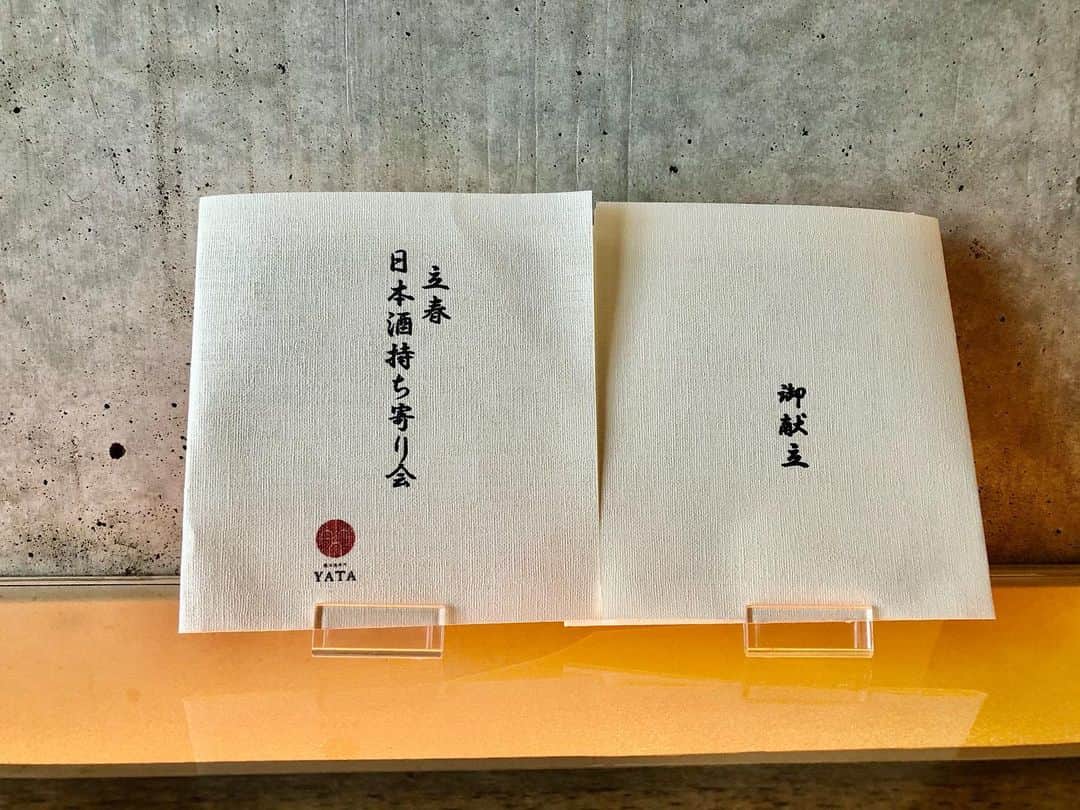 立春
日本酒持ち寄り会
YATA
御献立